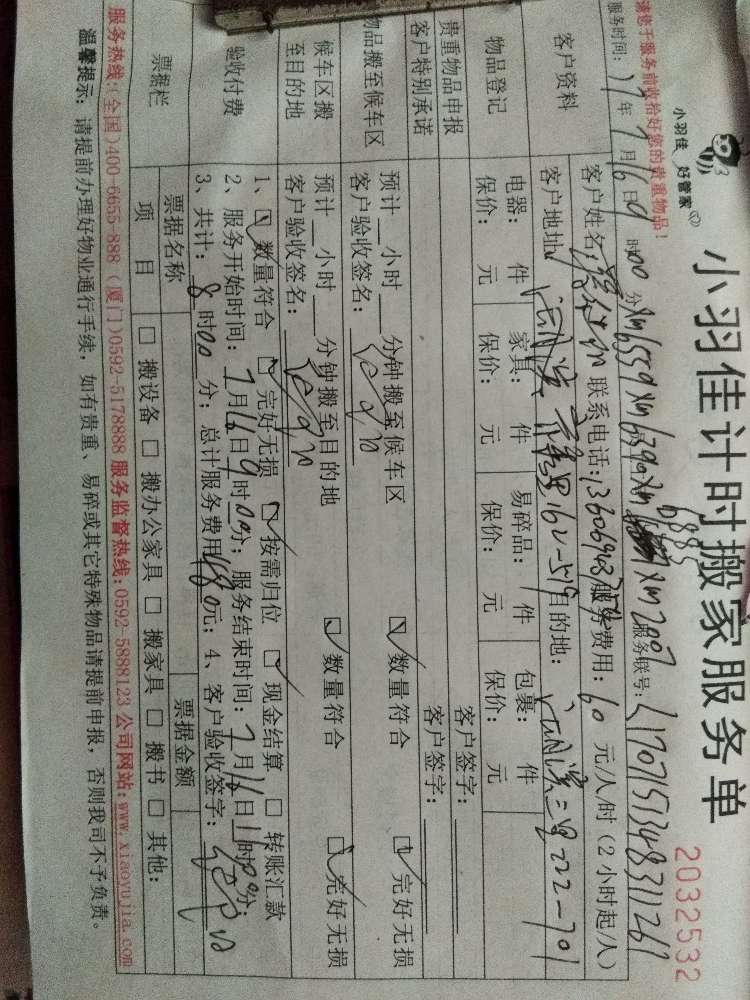 小羽佳 好管家
小羽佳计时搬家服务单
2032532
请您于服务前收拾好您的贵重物品！
服务时间：17年7月16日9时00分 服务联号：L170715134831126
客户资料
客户姓名： 联系电话： 服务费用：60元/人/时（2小时起/人）
客户地址： 162-519 目的地： 222-701
物品登记
电器： 件 家具： 件 易碎品： 件 包裹： 件
保价： 元 保价： 元 保价： 元 保价： 元
贵重物品申报 客户签字：
客户特别承诺 客户签字：
物品搬至候车区
预计 小时 分钟搬至候车区 数量符合 完好无损
客户验收签名：
候车区搬至目的地
预计 小时 分钟搬至目的地 数量符合 完好无损
客户验收签名：
验收付费
1、 数量符合 完好无损 按需归位 现金结算 转账汇款
2、服务开始时间：7月16日9时00分；服务结束时间：7月16日11时00分；
3、共计：8时00分；总计服务费用480元；4、客户验收签字：
票据栏
票据名称 票据金额
项目 搬设备 搬办公家具 搬家具 搬书 其他：
服务热线:（全国）400-6655-888（厦门）0592-5178888 服务监督热线:0592-5888123 公司网站:www.xiaoyujia.com
温馨提示：请提前办理好物业通行手续，如有贵重、易碎或其它特殊物品请提前申报，否则我司不予负责。